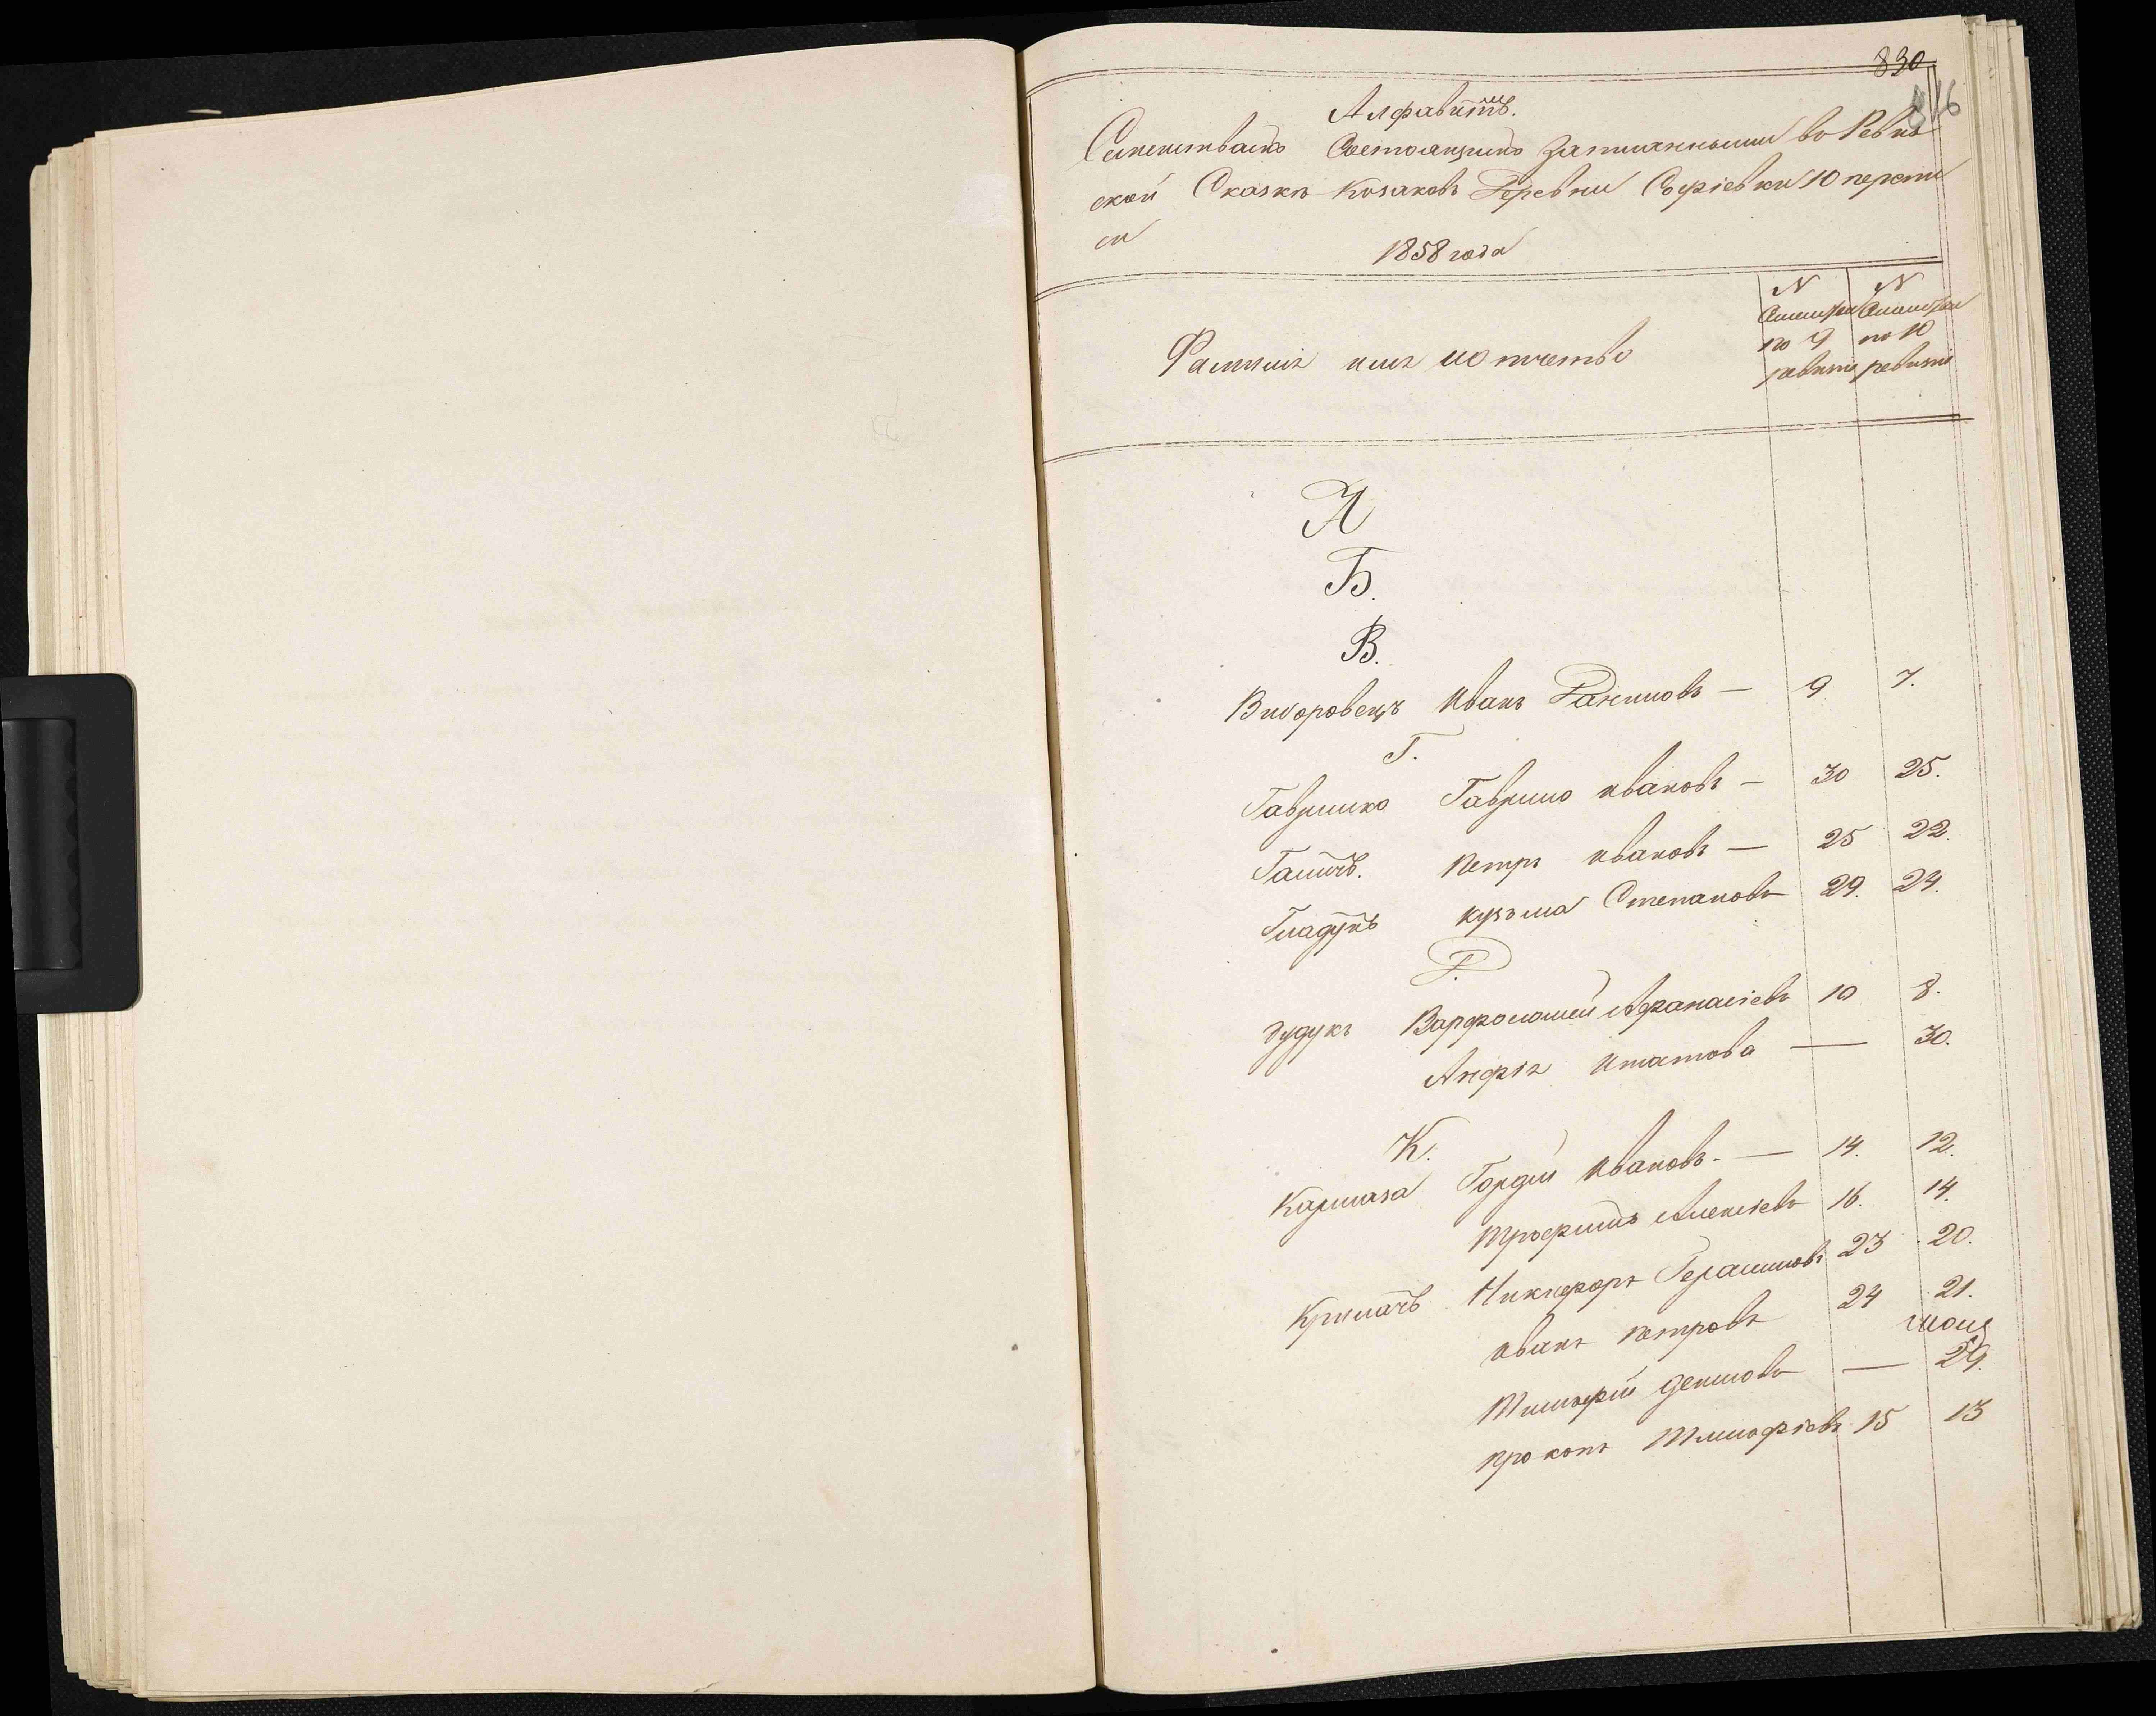 830
816
Алфавитъ.
Семействамъ Состоящимъ Записаннымъ во Ревиз
ской Сказкѣ Козаковъ Деревни Софіевки 10 перепи
си
1858 года
Фамилія имя и отчество
N Семейства по 9 ревизіи
N Семейства по 10 ревизіи
А
Б.
В.
Виборовецъ Иванъ Даниловъ — 9 7.
Г.
Гавришко Гаврило Ивановъ — 30 25.
Петръ Ивановъ — 25 22.
Гладунъ Кузьма Степановъ 29. 24.
Д.
Дудукъ Варфоломей Афанасіевъ 10 8.
Анфія Игнатова — 30.
К.
Кармаза Гордѣй Ивановъ. — 14. 12.
Трофимъ Алексіевъ 16. 14.
Кримачъ Никифоръ Герасимовъ 23 20.
Иванъ Петровъ 24 21.
Тимофій Демидовъ — 29.
Прокопъ Тимофіевъ 15 13